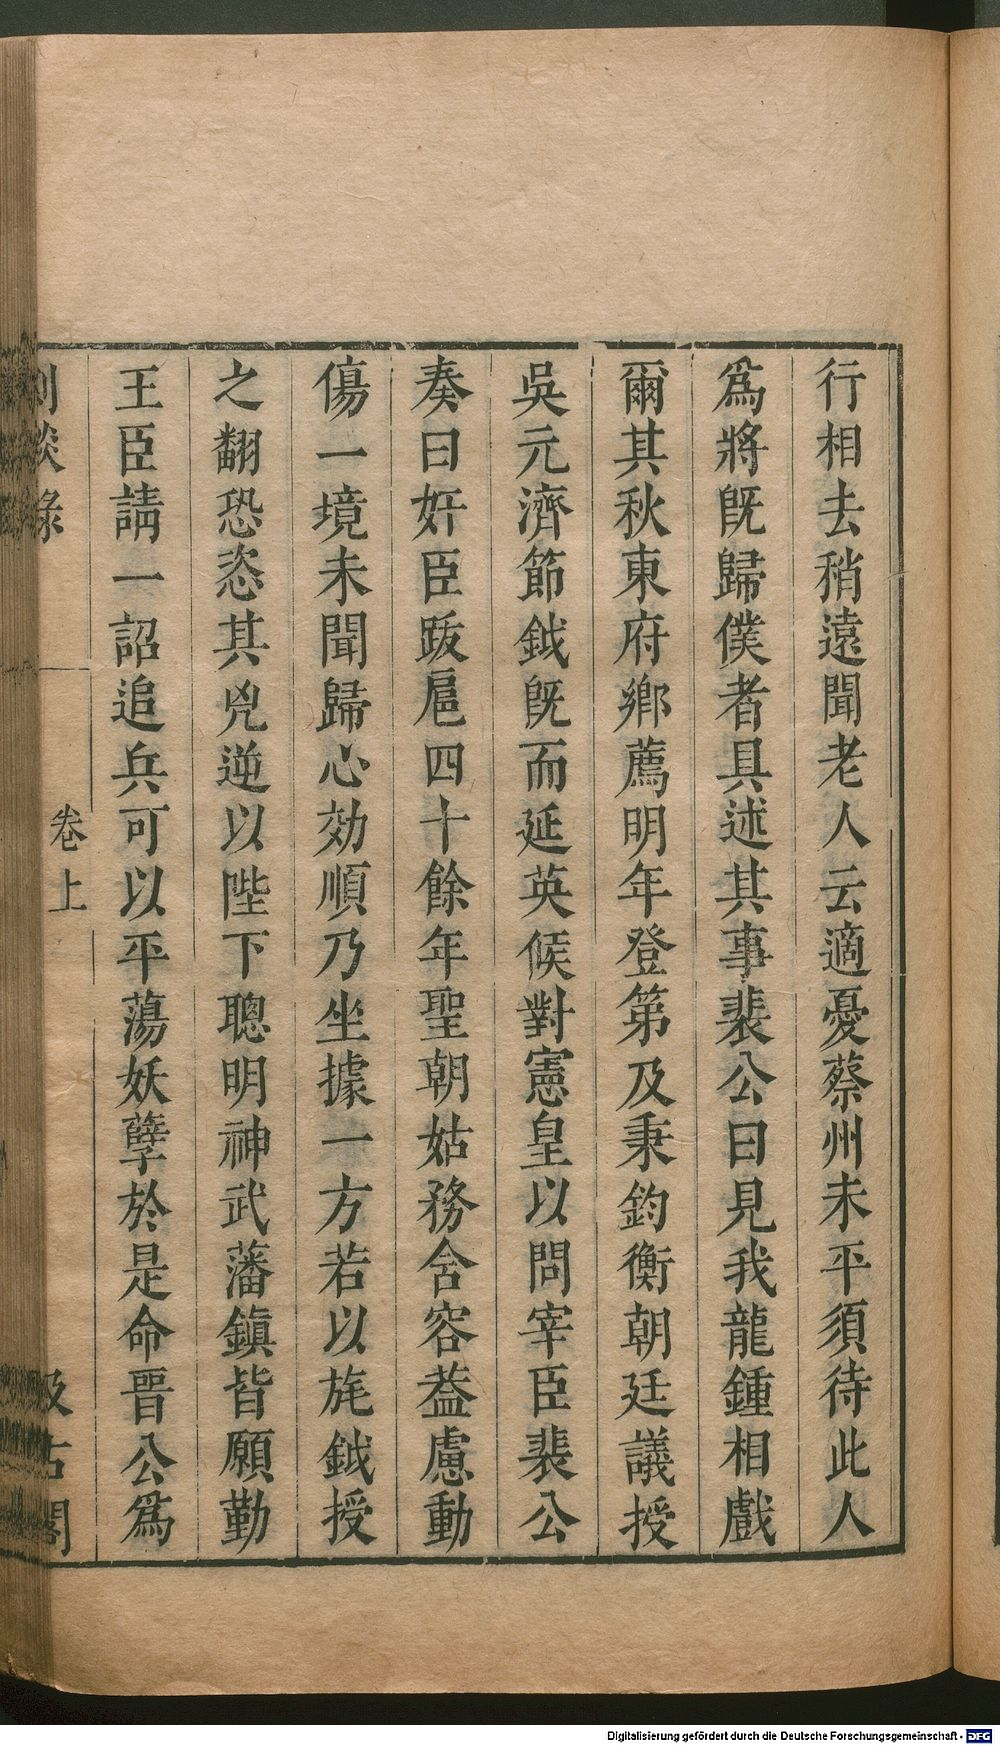 行相去稍遠聞老人云適憂蔡州未平須待此人
爲將旣歸僕者具述其事裴公曰見我龍鍾相戲
爾其秋東府鄉薦明年登第及秉鈞衡朝廷議授
吳元濟節鉞旣而延英候對憲皇以問宰臣裴公
奏曰奸臣跋扈四十餘年聖朝姑務含容葢慮動
傷一境未聞歸心効順乃坐據一方若以旄鉞授
之翻恐恣其兇逆以陛下聰明神武藩鎮皆願勤
王臣請一詔追兵可以平蕩妖孽於是命晉公爲
劇談錄
卷上
汲古閣
Digitalisierung gefördert durch die Deutsche Forschungsgemeinschaft - DFG